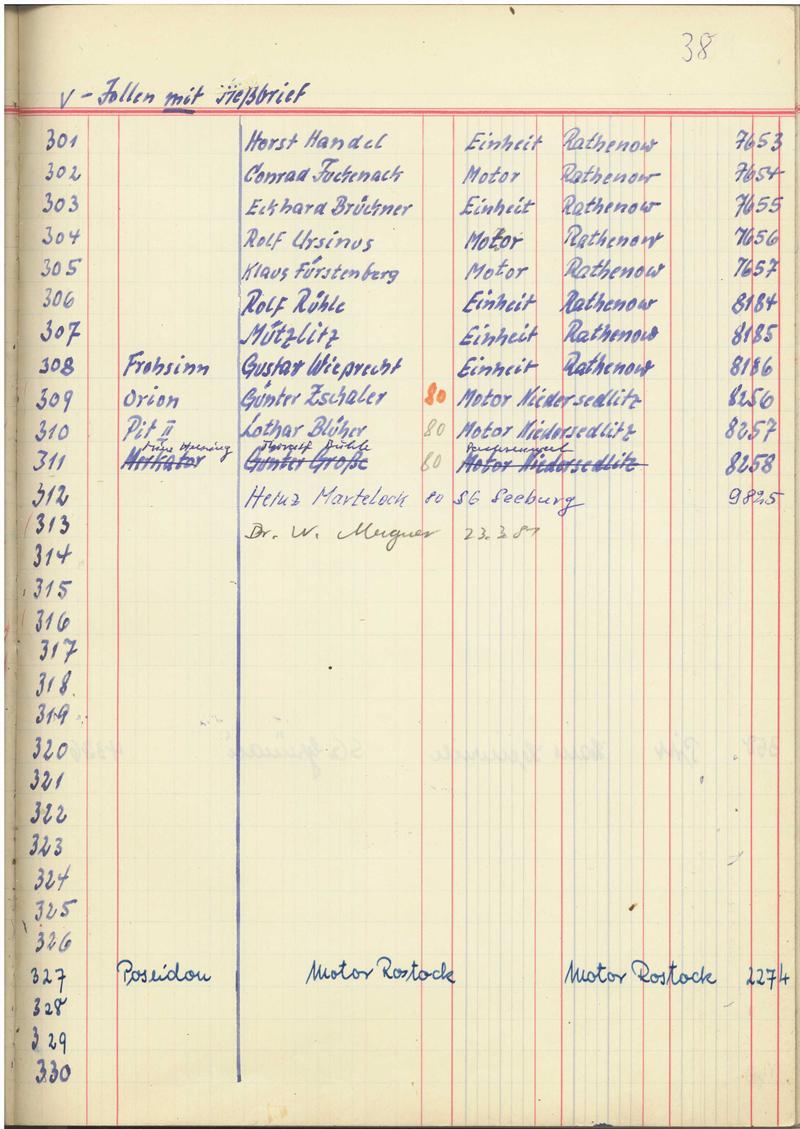 38
V-Jollen mit Meßbrief
301 Horst Handel Einheit Rathenow 7653
302 Conrad Tuckenack Motor Rathenow 7654
303 Eckhard Brückner Einheit Rathenow 7655
304 Rolf Ursinus Motor Rathenow 7656
305 Klaus Fürstenberg Motor Rathenow 7657
306 Rolf Rühle Einheit Rathenow 8184
307 Mützlitz Einheit Rathenow 8185
308 Frohsinn Gustav Wieprecht Einheit Rathenow 8186
309 Orion Günter Zschaler 80 Motor Niedersedlitz 8256
310 Pit II Lothar Blüher 80 Motor Niedersedlitz 8257
311 Merkator Günter Große 80 Motor Niedersedlitz 8258
312 Heinz Martelock 80 SG Seeburg 9825
313 Dr. W. 23.3.81
314
315
316
317
318
319
320
321
322
323
324
325
326
327 Poseidon Motor Rostock Motor Rostock 2274
328
329
330